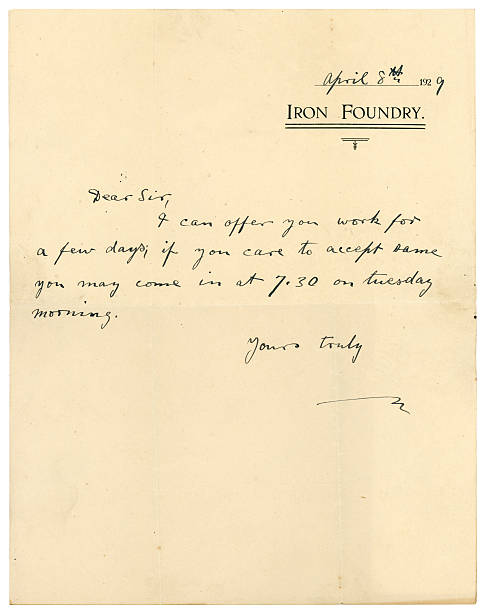 April 8th 1929
IRON FOUNDRY.
Dear Sir,
I can offer you work for
a few days; if you care to accept same
you may come in at 7.30 on tuesday
morning.
Yours truly